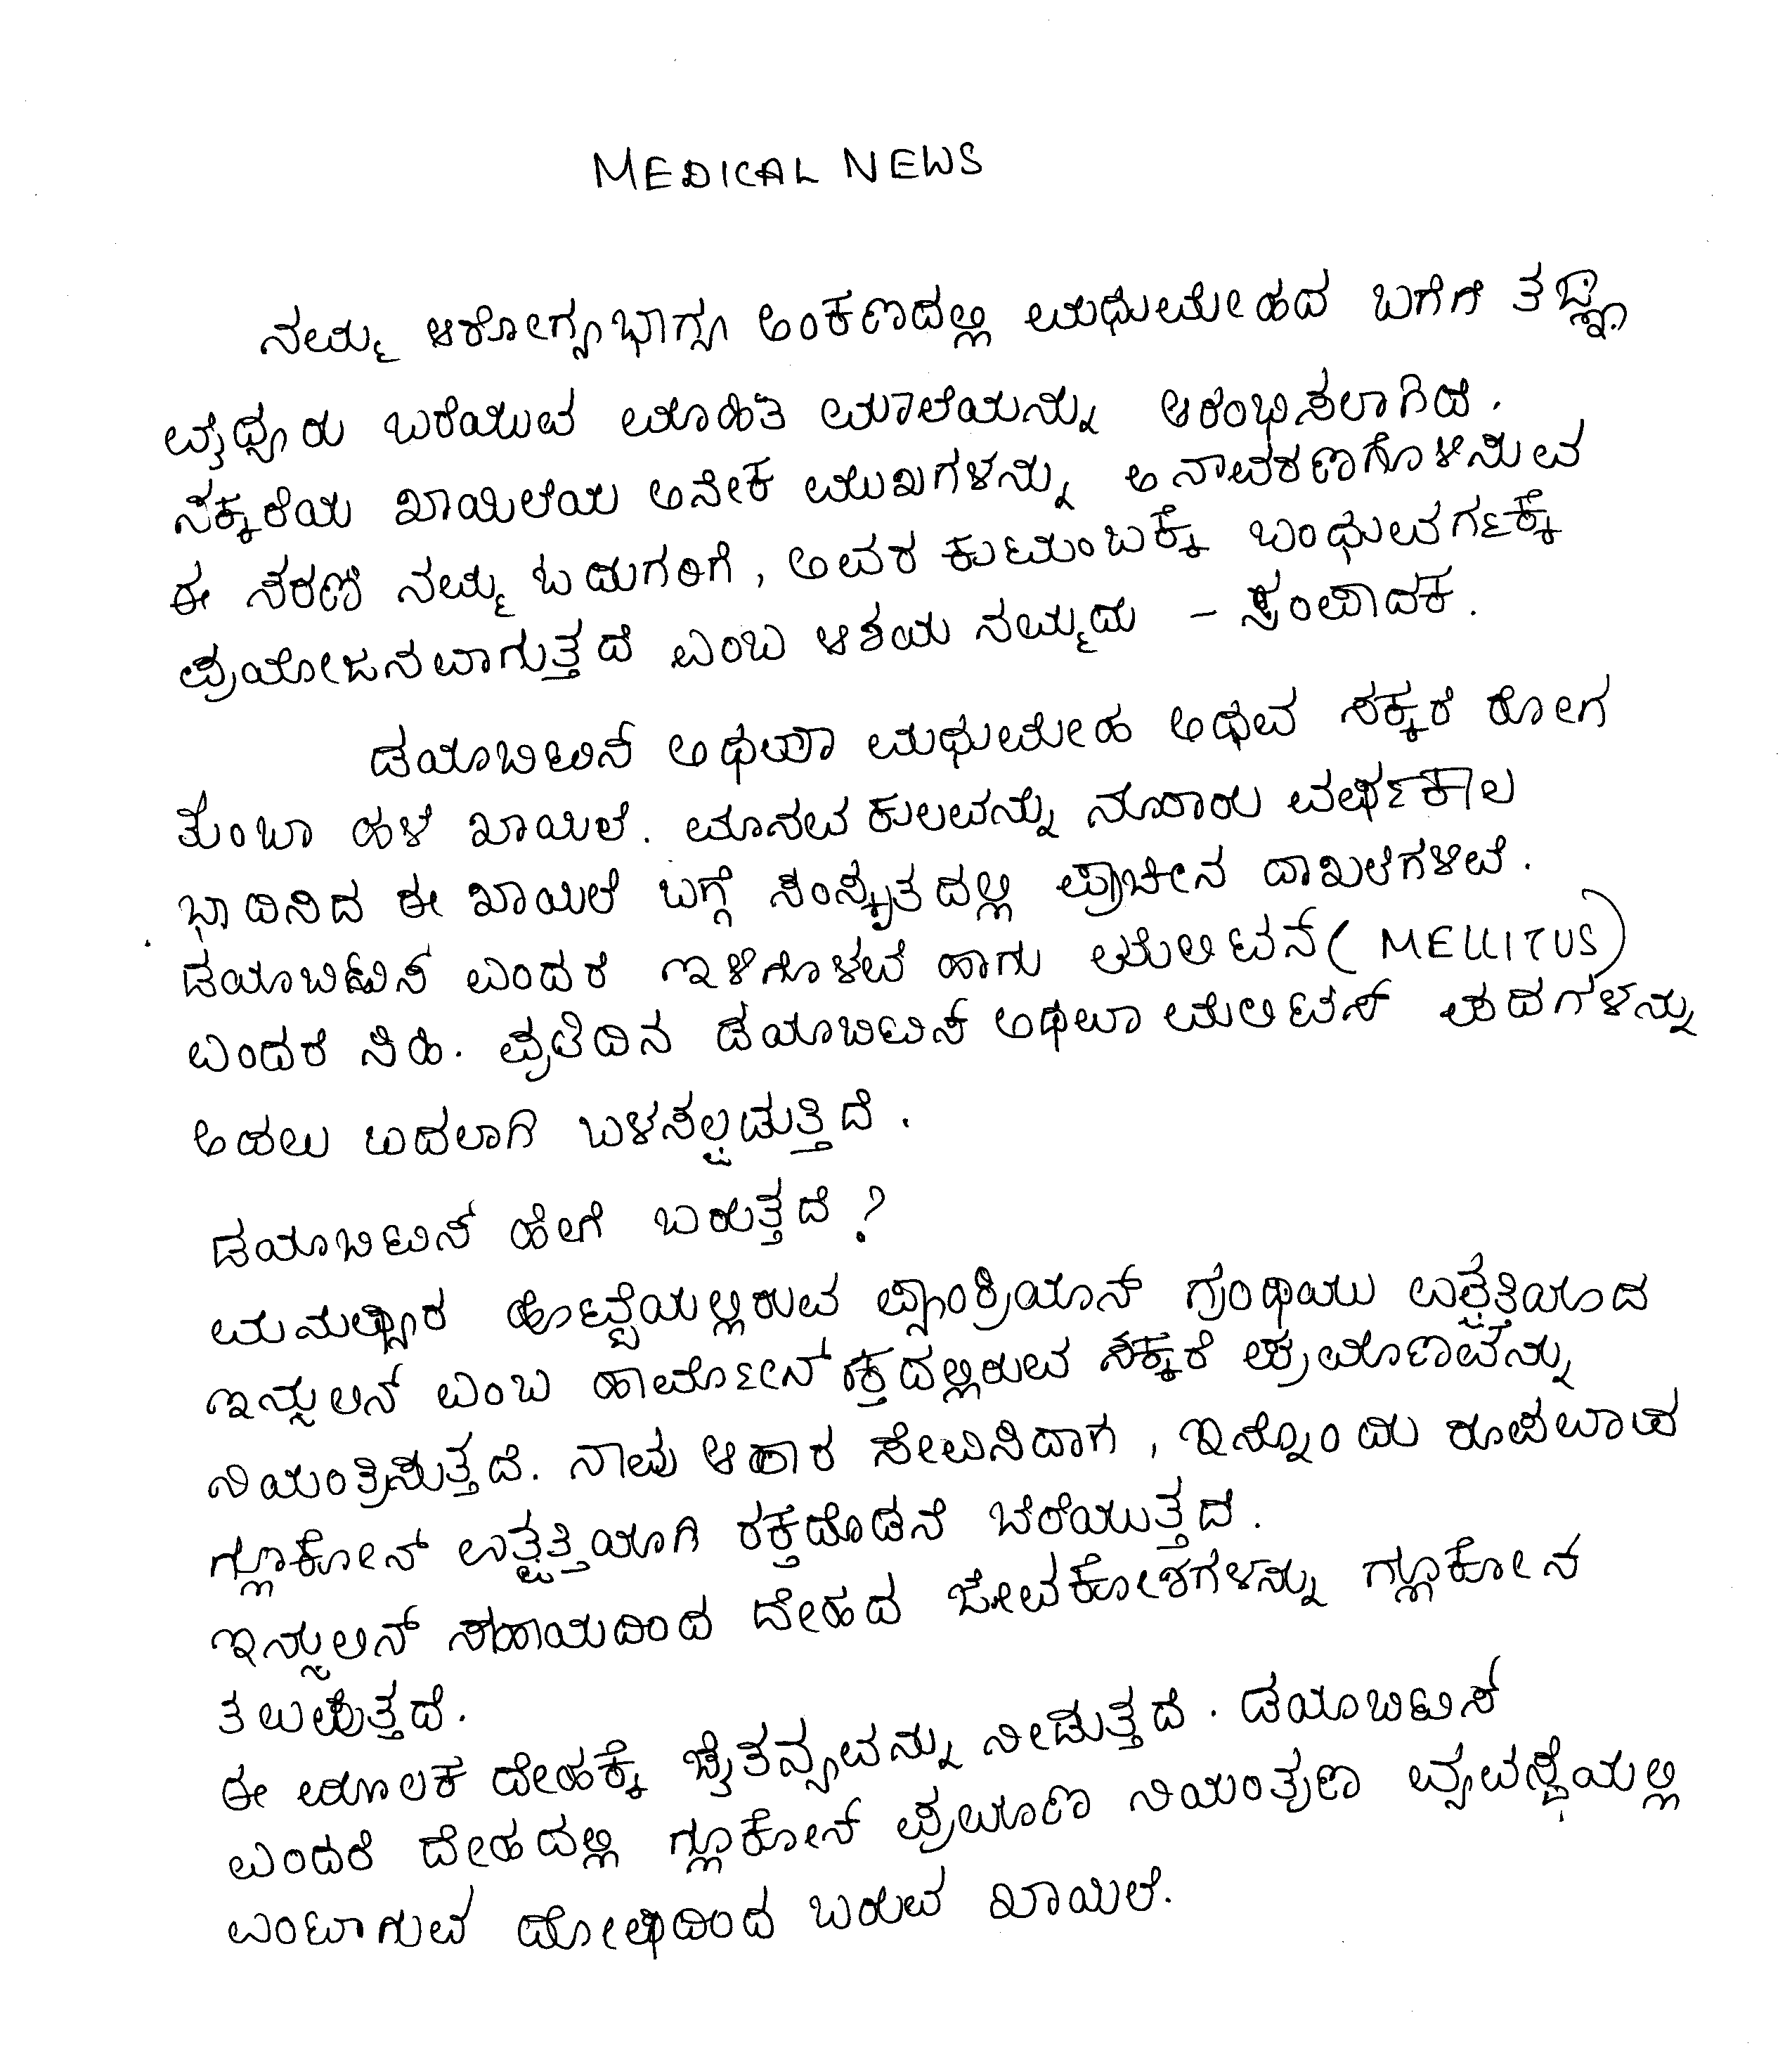 MEDICAL NEWS
ನಮ್ಮ ಆರೋಗ್ಯಭಾಗ್ಯ ಅಂಕಣದಲ್ಲಿ ಮಧುಮೇಹದ ಬಗೆಗೆ ತಜ್ಞ
ವೈದ್ಯರು ಬರೆಯುವ ಮಾಹಿತಿ ಮಾಲೆಯನ್ನು ಆರಂಭಿಸಲಾಗಿದೆ.
ಸಕ್ಕರೆಯ ಖಾಯಿಲೆಯ ಅನೇಕ ಮುಖಗಳನ್ನು ಅನಾವರಣಗೊಳಿಸುವ
ಈ ಸರಣಿ ನಮ್ಮ ಓದುಗರಿಗೆ, ಅವರ ಕುಟುಂಬಕ್ಕೆ ಬಂಧುವರ್ಗಕ್ಕೆ
ಪ್ರಯೋಜನವಾಗುತ್ತದೆ ಎಂಬ ಆಶಯ ನಮ್ಮದು - ಸಂಪಾದಕ.
ಡಯಾಬಿಟಿಸ್ ಅಥವಾ ಮಧುಮೇಹ ಅಥವ ಸಕ್ಕರೆ ರೋಗ
ತುಂಬಾ ಹಳೆ ಖಾಯಿಲೆ. ಮಾನವ ಕುಲವನ್ನು ನೂರಾರು ವರ್ಷಕಾಲ
ಭಾದಿಸಿದ ಈ ಖಾಯಿಲೆ ಬಗ್ಗೆ ಸಂಸ್ಕೃತದಲ್ಲಿ ಪ್ರಾಚೀನ ದಾಖಲೆಗಳಿವೆ.
ಡಯಾಬಿಟಿಸ್ ಎಂದರೆ ಇಳಿಗೊಳವೆ ಹಾಗು ಮೆಲಿಟಸ್ (MELLITUS)
ಎಂದರೆ ಸಿಹಿ. ಪ್ರತಿದಿನ ಡಯಾಬಿಟಿಸ್ ಅಥವಾ ಮೆಲಿಟಸ್ ಪದಗಳನ್ನು
ಅದಲು ಬದಲಾಗಿ ಬಳಸಲ್ಪಡುತ್ತಿದೆ.
ಡಯಾಬಿಟಿಸ್ ಹೇಗೆ ಬರುತ್ತದೆ?
ಹೊಟ್ಟೆಯಲ್ಲಿರುವ ಪ್ಯಾಂಕ್ರಿಯಾಸ್ ಗ್ರಂಥಿಯು ಉತ್ಪತ್ತಿಯಾದ
ಇನ್ಸುಲಿನ್ ಎಂಬ ಹಾರ್ಮೋನ್ ರಕ್ತದಲ್ಲಿರುವ ಸಕ್ಕರೆ ಪ್ರಮಾಣವನ್ನು
ನಿಯಂತ್ರಿಸುತ್ತದೆ. ನಾವು ಆಹಾರ ಸೇವಿಸಿದಾಗ, ಇನ್ನೊಂದು ರೂಪವಾದ
ಗ್ಲೂಕೋಸ್ ಉತ್ಪತ್ತಿಯಾಗಿ ರಕ್ತದೊಡನೆ ಬೆರೆಯುತ್ತದೆ.
ಇನ್ಸುಲಿನ್ ಸಹಾಯದಿಂದ ದೇಹದ ಜೀವಕೋಶಗಳನ್ನು ಗ್ಲೂಕೋಸ
ತಲುಪುತ್ತದೆ.
ಈ ಮೂಲಕ ದೇಹಕ್ಕೆ ಚೈತನ್ಯವನ್ನು ನೀಡುತ್ತದೆ. ಡಯಾಬಿಟಿಸ್
ಎಂದರೆ ದೇಹದಲ್ಲಿ ಗ್ಲೂಕೋಸ್ ಪ್ರಮಾಣ ನಿಯಂತ್ರಣ ವ್ಯವಸ್ಥೆಯಲ್ಲಿ
ಎಂಟಾಗುವ ದೋಷದಿಂದ ಬರುವ ಖಾಯಿಲೆ.